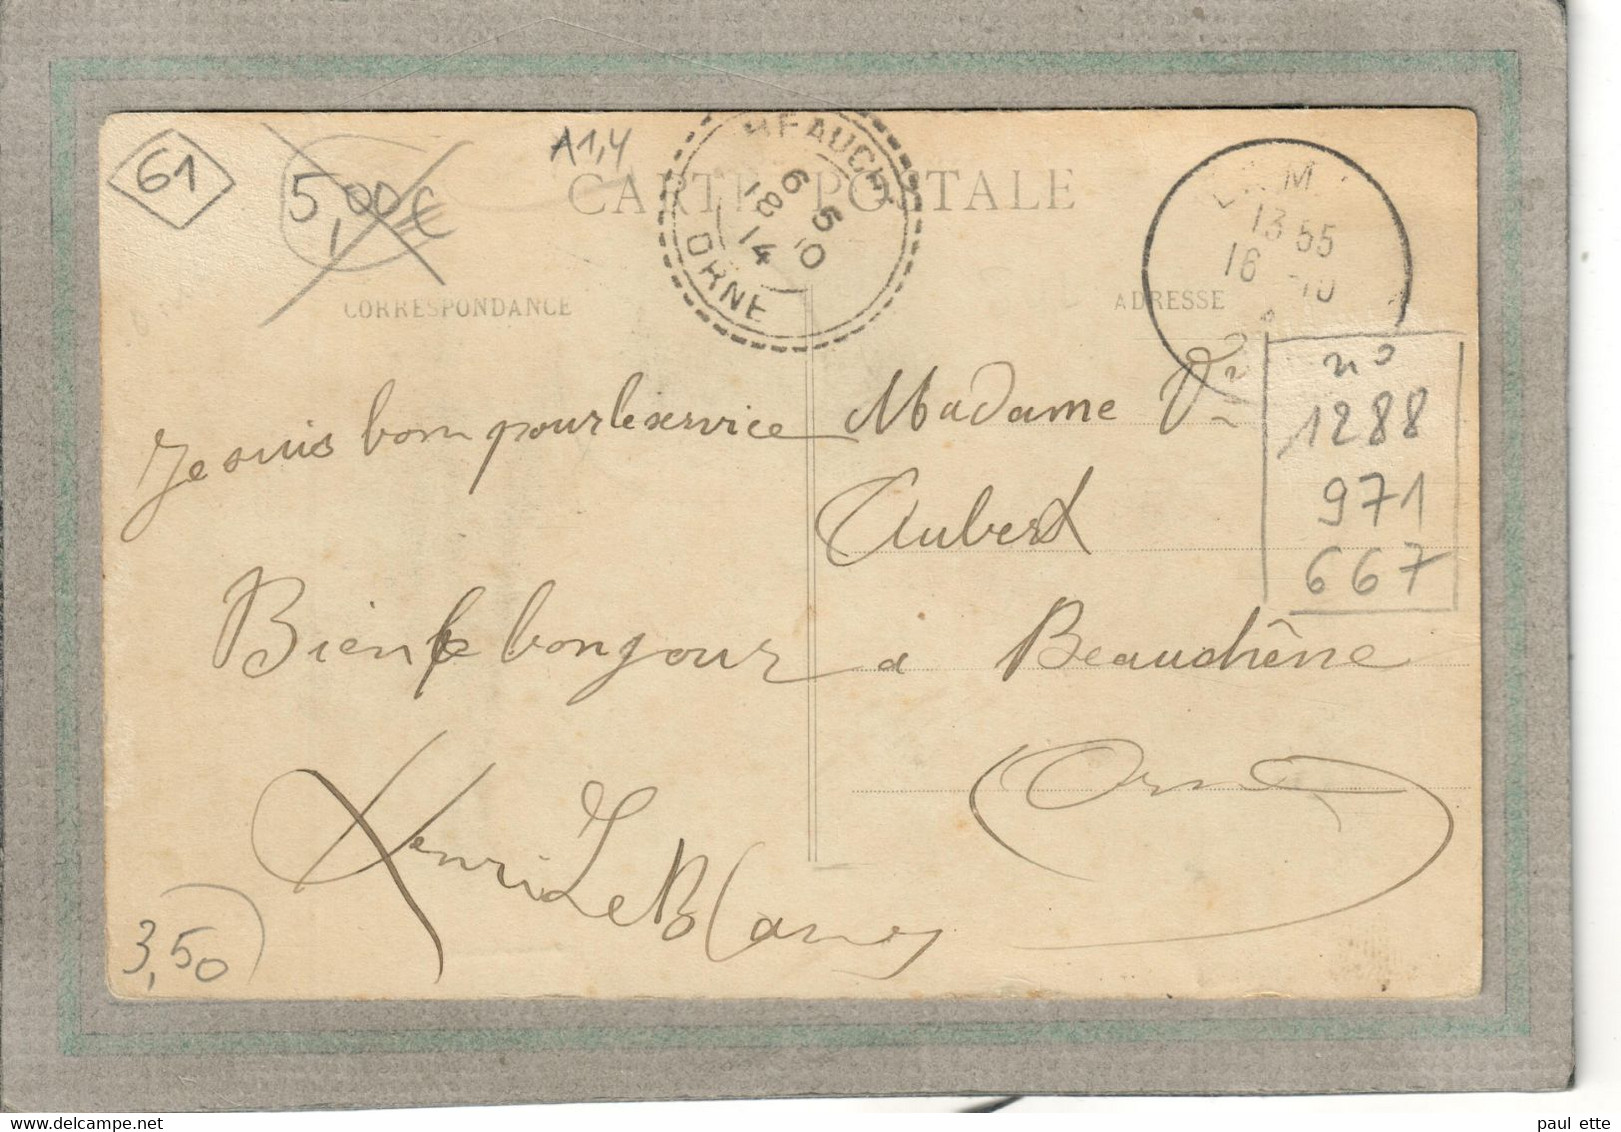 61
5,00€
A1,4
CARTE POSTALE
BEAUCHE
6 5
18 10
14
ORNE
13 55
16 10
CORRESPONDANCE
ADRESSE
n°
1288
971
667
Je suis bon pour le service
Bien le bonjour
Henri Le Blanc
Madame Vve
Aubert
a Beauchêne
Orne
3,50
paul ette